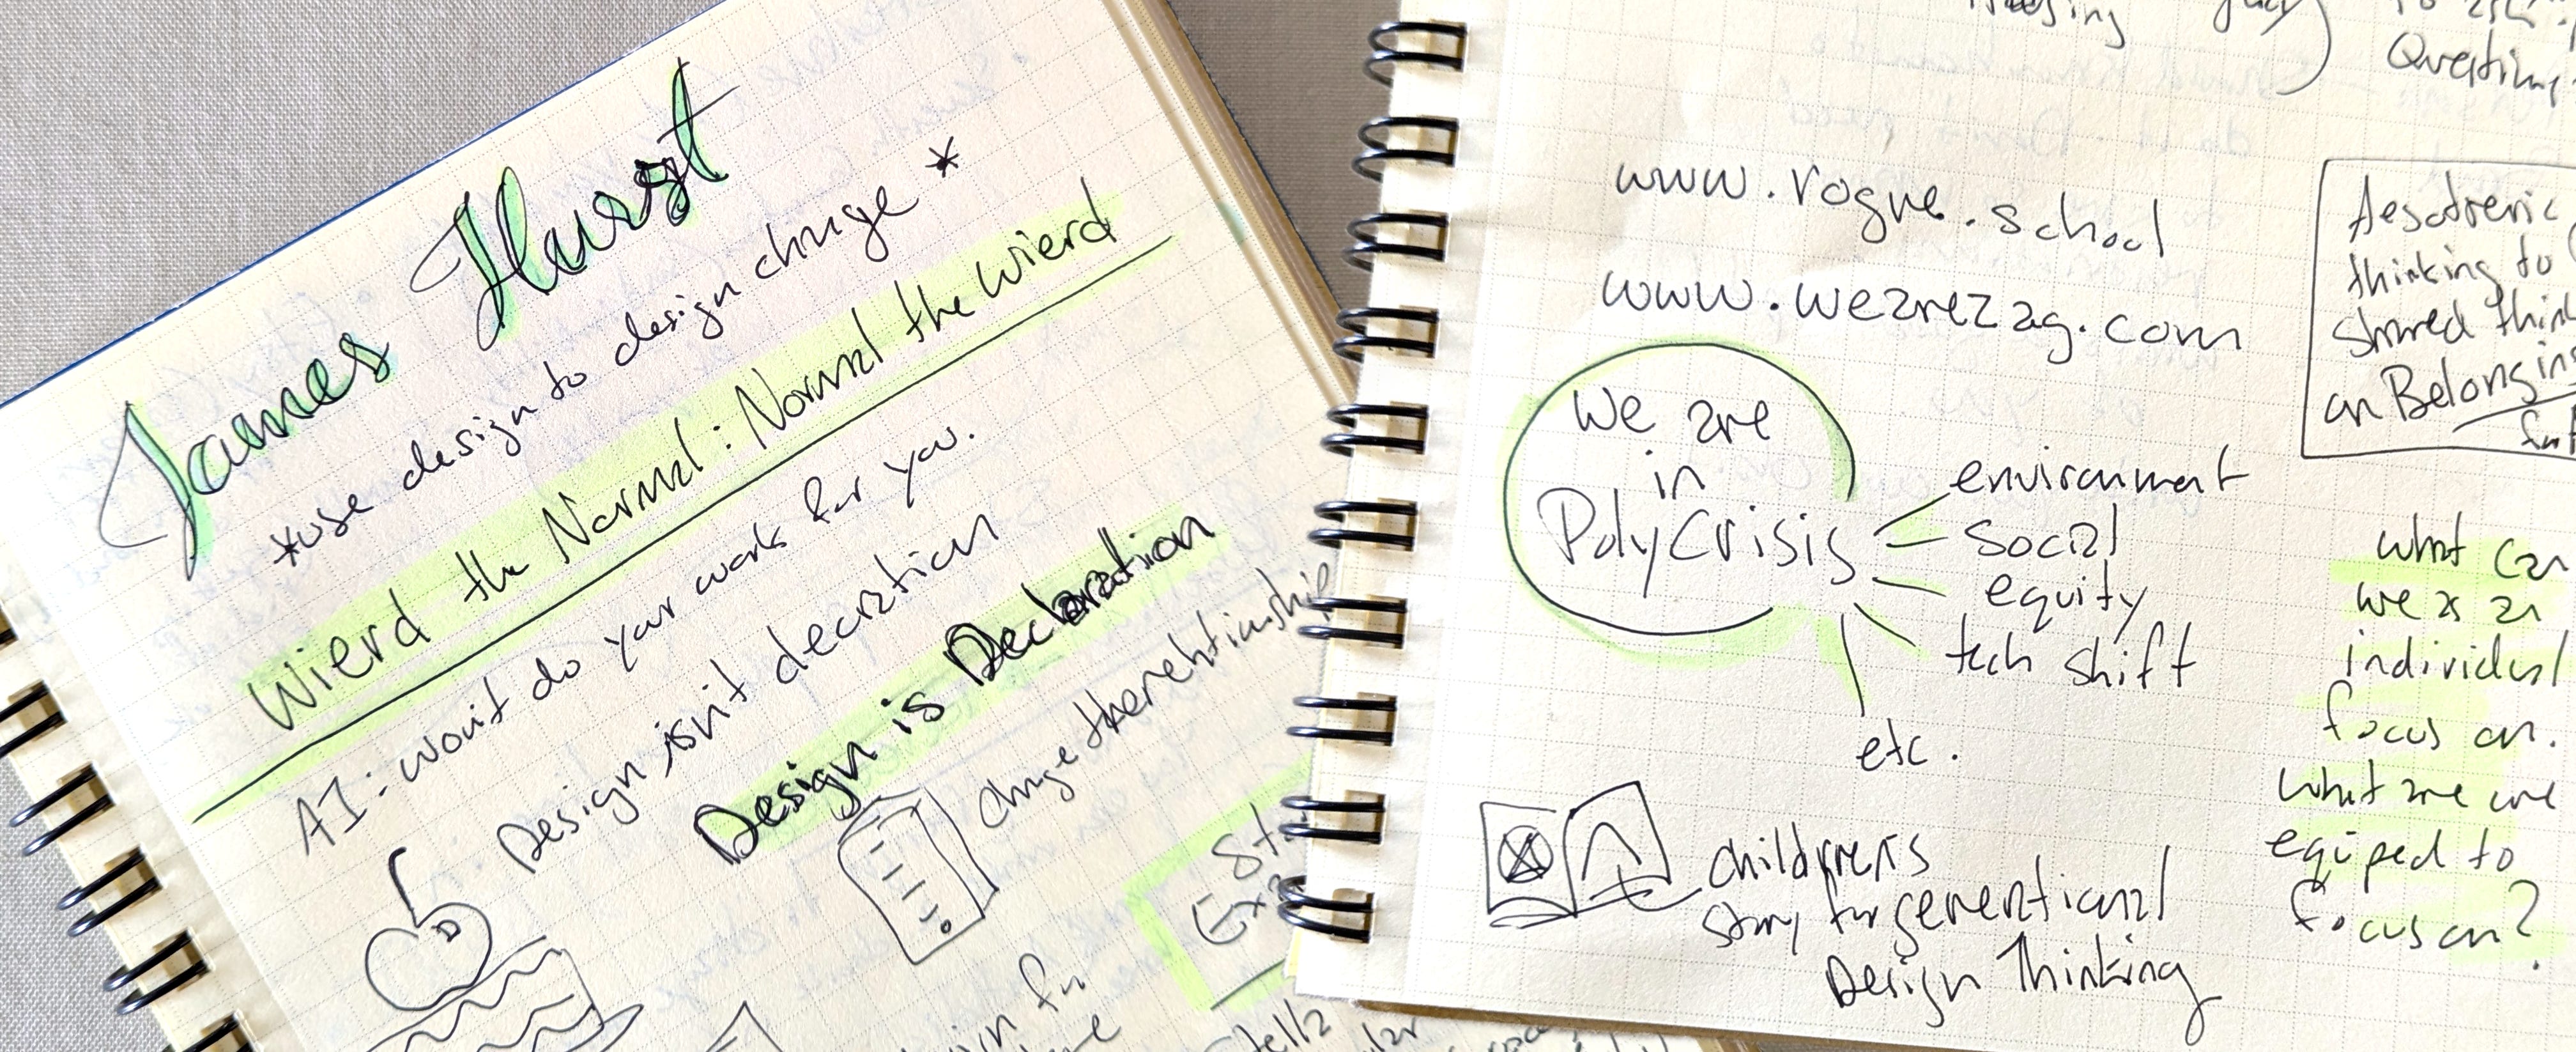 James Hurst
*use design to design change *
Wierd the Normal : Normal the Wierd
AI: won't do your work for you.
Design isn't decoration
Design is Declaration
change the relationship
for
Questions
www.rogue.school
www.wearezag.com
We are
in
PolyCrisis
environment
social
equity
tech shift
etc.
children's
story for generational
Design Thinking
thinking to
shared
on Belonging
what can
we as an
individual
focus on.
what are we
equiped to
focus on?